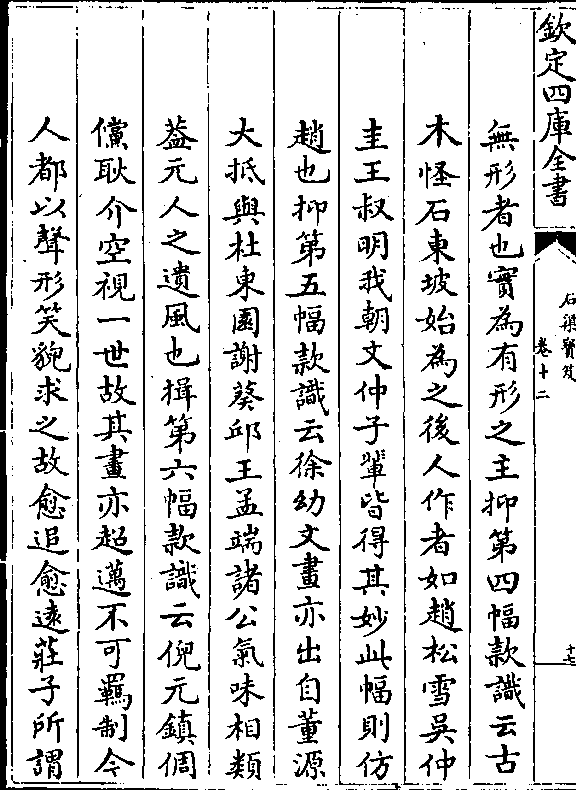 欽定四庫全書
石渠寶笈
卷十二
十七
無形者也實為有形之主抑第四幅款識云古
木怪石東坡始為之後人作者如趙松雪吳仲
圭王叔明我朝文仲子輩皆得其妙此幅則仿
趙也抑第五幅款識云徐幼文畫亦出自董源
大抵與杜東園謝葵邱王孟端諸公氣味相類
葢元人之遺風也揖第六幅款識云倪元鎮倜
儻耿介空視一世故其畫亦超邁不可羈制今
人都以聲形笑貌求之故愈追愈遠莊子所謂